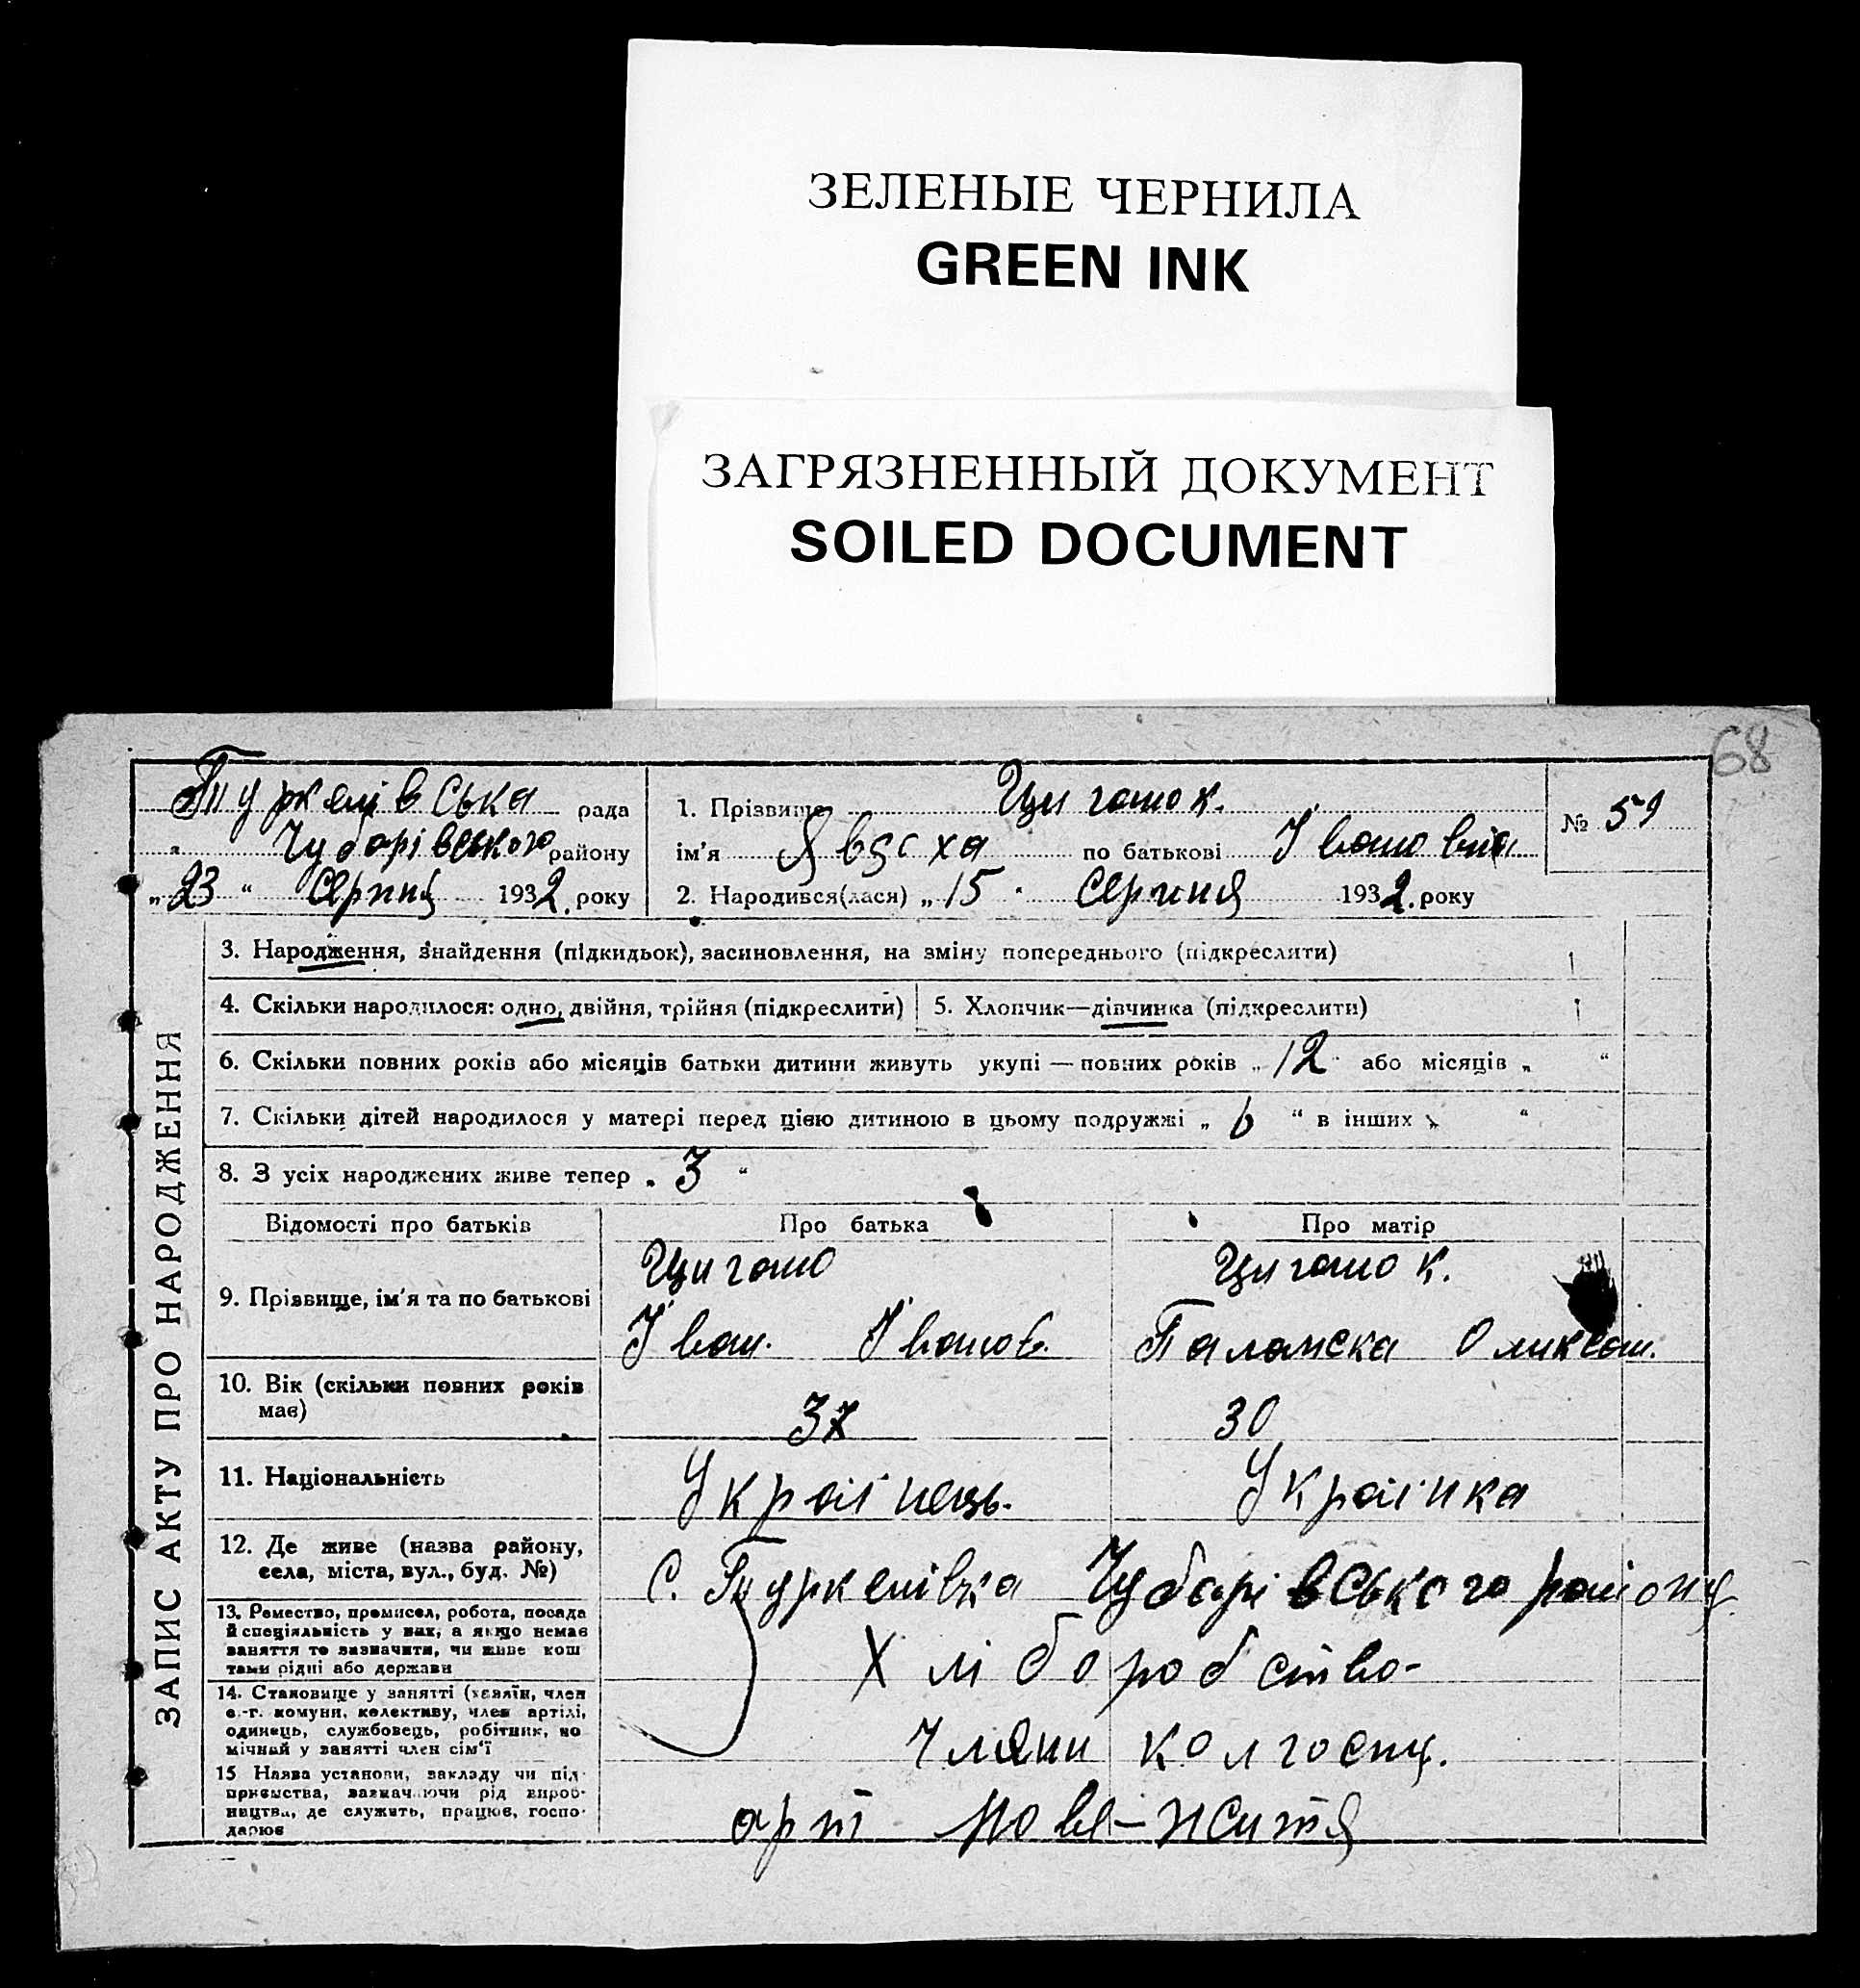 ЗЕЛЕНЫЕ ЧЕРНИЛА
GREEN INK
ЗАГРЯЗНЕННЫЙ ДОКУМЕНТ
SOILED DOCUMENT
68
Туркенівська рада
Чубарівського району
„23“ Серпня 1932 року
1. Прізвище Циганок.
ім'я Явдоха по батькові Івановна
2. Народився(лася) „15“ Серпня 1932 року
№ 59
ЗАПИС АКТУ ПРО НАРОДЖЕННЯ
3. Народження, знайдення (підкидьок), засиновлення, на зміну попереднього (підкреслити)
4. Скільки народилося: одно, двійня, трійня (підкреслити)
5. Хлопчик—дівчинка (підкреслити)
6. Скільки повних років або місяців батьки дитини живуть укупі — повних років „12“ або місяців „ “
7. Скільки дітей народилося у матері перед цією дитиною в цьому подружжі „6“ в інших „ “
8. З усіх народжених живе тепер „3“
Відомості про батьків
Про батька
Про матір
9. Прізвище, ім'я та по батькові
Цигано
Іван. Іванов.
Циганок.
Паламска
10. Вік (скільки повних років
має)
37
30
11. Національність
Українець.
Українка
12. Де живе (назва району,
села, міста, вул., буд. №)
С. Туркенівка Чубарівського району
13. Ремество, промисел, робота, посада
й спеціяльність у них, а якщо немає
заняття то зазначити, чи живе кош
тами рідні або держави
Хліборобство-
14. Становище у занятті (хазяїн, член
с.-г. комуни, колективу, член артілі,
одинець, службовець, робітник, по
мічний у занятті член сім'ї
Члени колгоспу.
15 Назва установи, закладу чи під-
приємства, зазначаючи рід вироб-
ництва, де служить, працює, госпо-
дарює
арт Нове-житя